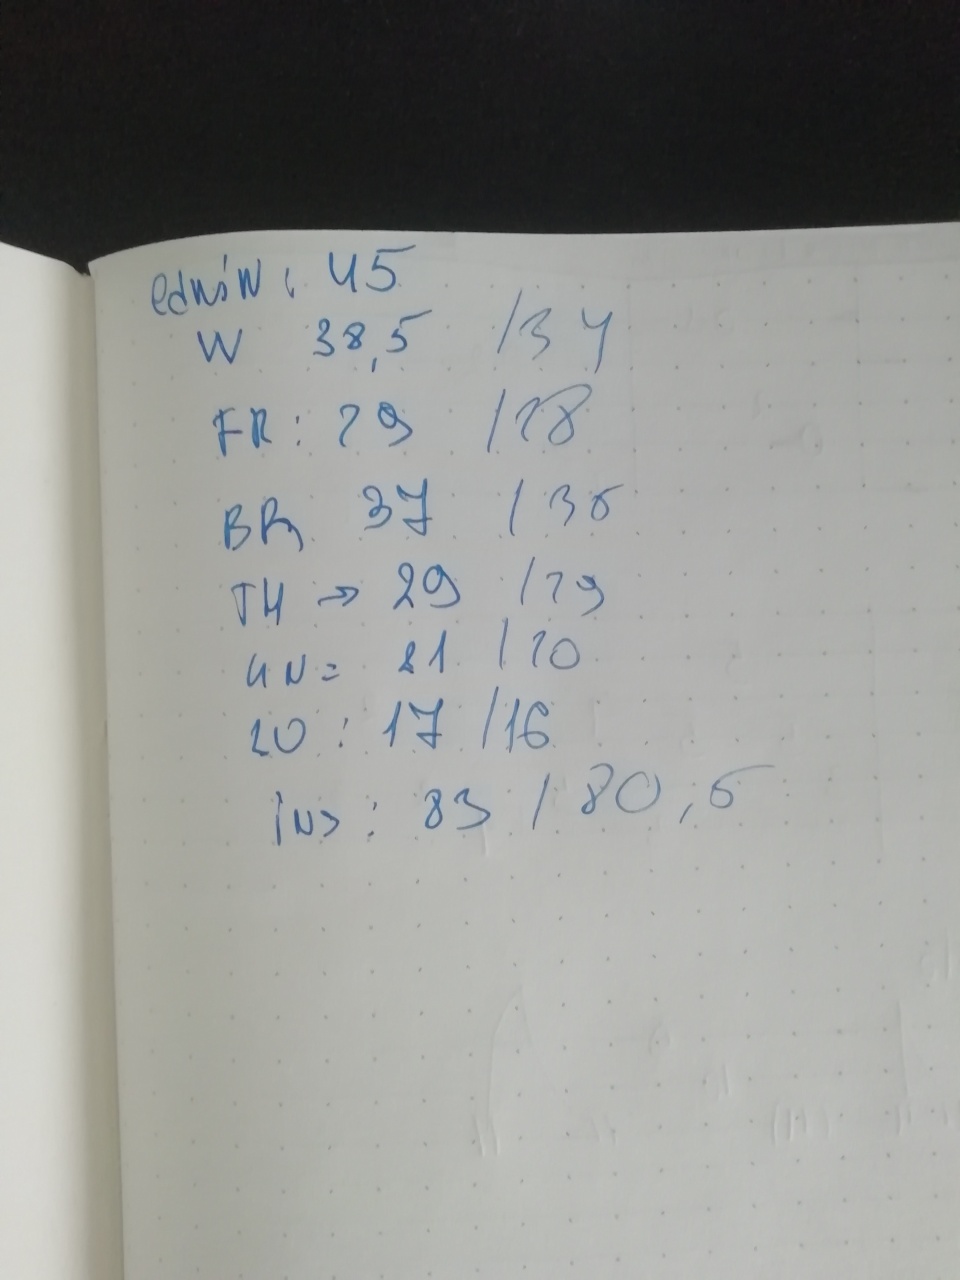 45
W 38,5 /34
FR: 29 /28
BR 37 /36
TH → 29 /29
UN= 21 /20
20 : 17 /16
ins : 83 / 80,5